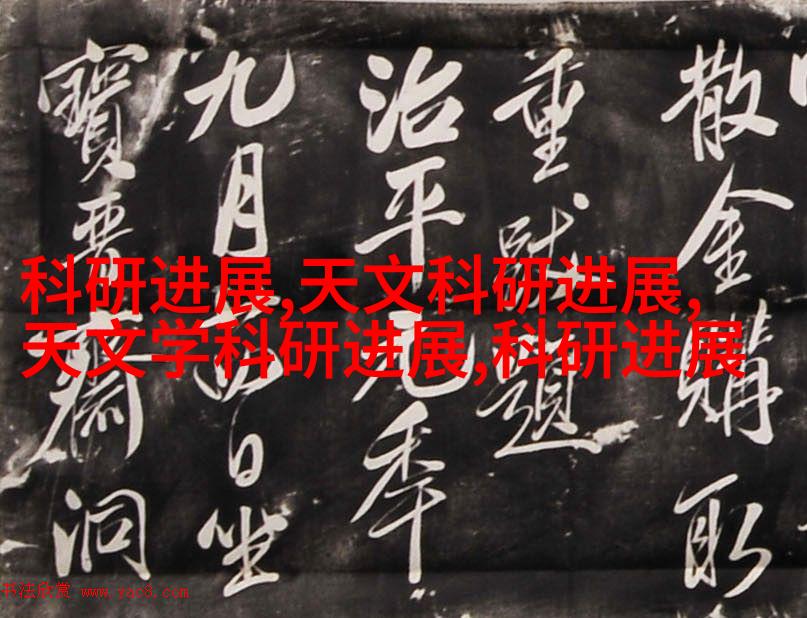 散金購取
重跋題
治平元秊
九月日坐
寶晉齋洞
科研进展,天文科研进展,
天文学科研进展,科研进展
书法欣赏 www.yac8.com